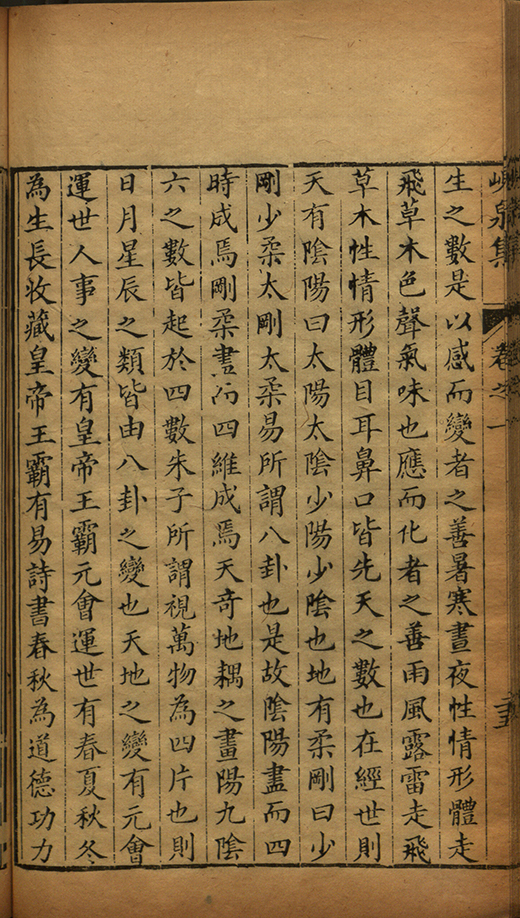 峴泉集 卷之一
生之數是以感而變者之善暑寒晝夜性情形體走
飛草木色聲氣味也應而化者之善雨風露雷走飛
草木性情形體目耳鼻口皆先天之數也在經世則
天有陰陽曰太陽太陰少陽少陰也地有柔剛曰少
剛少柔太剛太柔易所謂八卦也是故陰陽盡而四
時成焉剛柔盡而四維成焉天奇地耦之畫陽九陰
六之數皆起於四數朱子所謂視萬物為四片也則
日月星辰之類皆由八卦之變也天地之變有元會
運世人事之變有皇帝王霸元會運世有春夏秋冬
為生長收藏皇帝王霸有易詩書春秋為道德功力